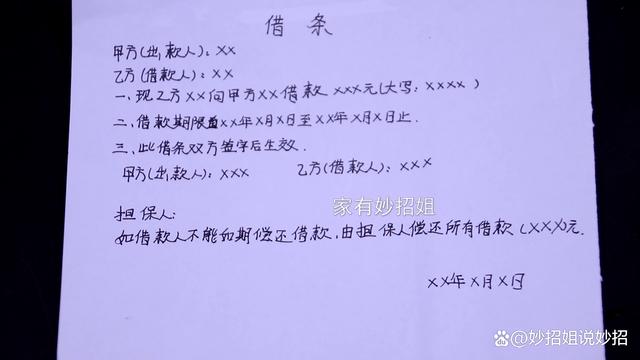 借条
甲方(出款人): XX
乙方(借款人): XX
一、现乙方XX向甲方XX借款 XXX元(大写: XXXX )
二、借款期限XX年X月X日至XX年X月X日止.
三、此借条双方签字后生效.
甲方(出款人): XXX 乙方(借款人): XXX
家有妙招姐
担保人:
如借款人不能如期偿还借款,由担保人偿还所有借款(XXX)元.
XX年X月X日
@妙招姐说妙招